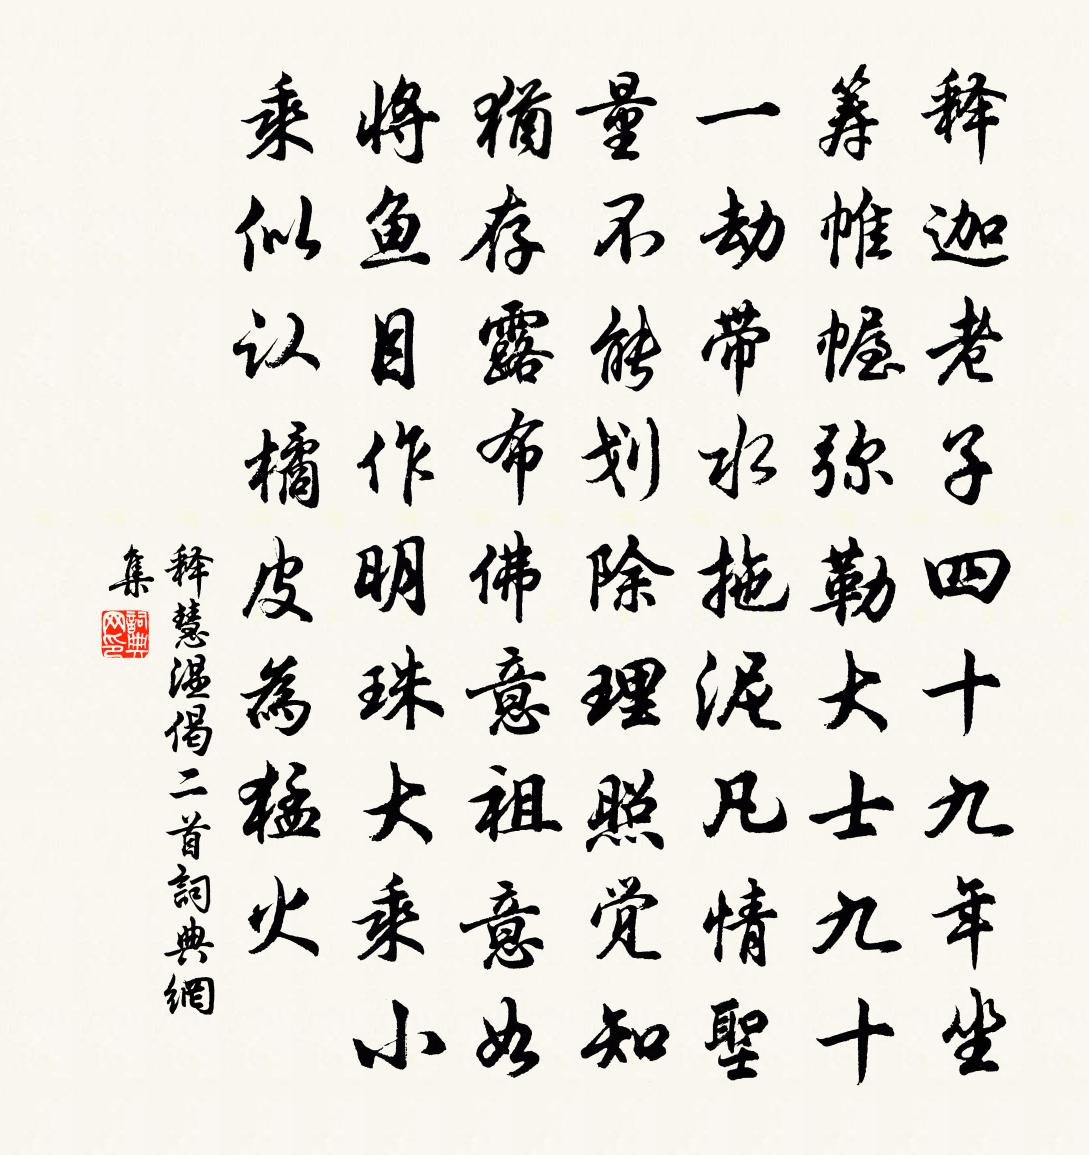 释迦老子四十九年坐
筹帷幄弥勒大士九十
一劫带水拖泥凡情聖
量不能划除理照觉知
猶存露布佛意祖意如
将鱼目作明珠大乘小
乘似认橘皮為猛火
释慧温偈二首詞典網
集
詞典网印